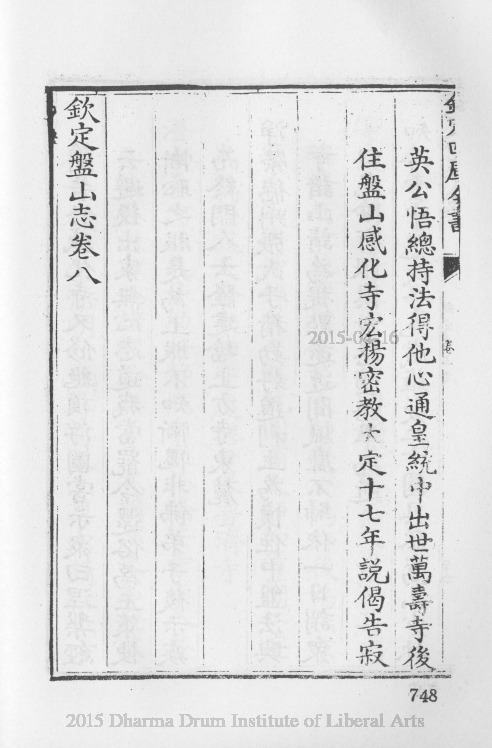 欽定四庫全書
英公悟總持法得他心通皇統中出世萬壽寺後
住盤山感化寺宏揚密教大定十七年說偈告寂
欽定盤山志卷八
748
2015 Dharma Drum Institute of Liberal Arts